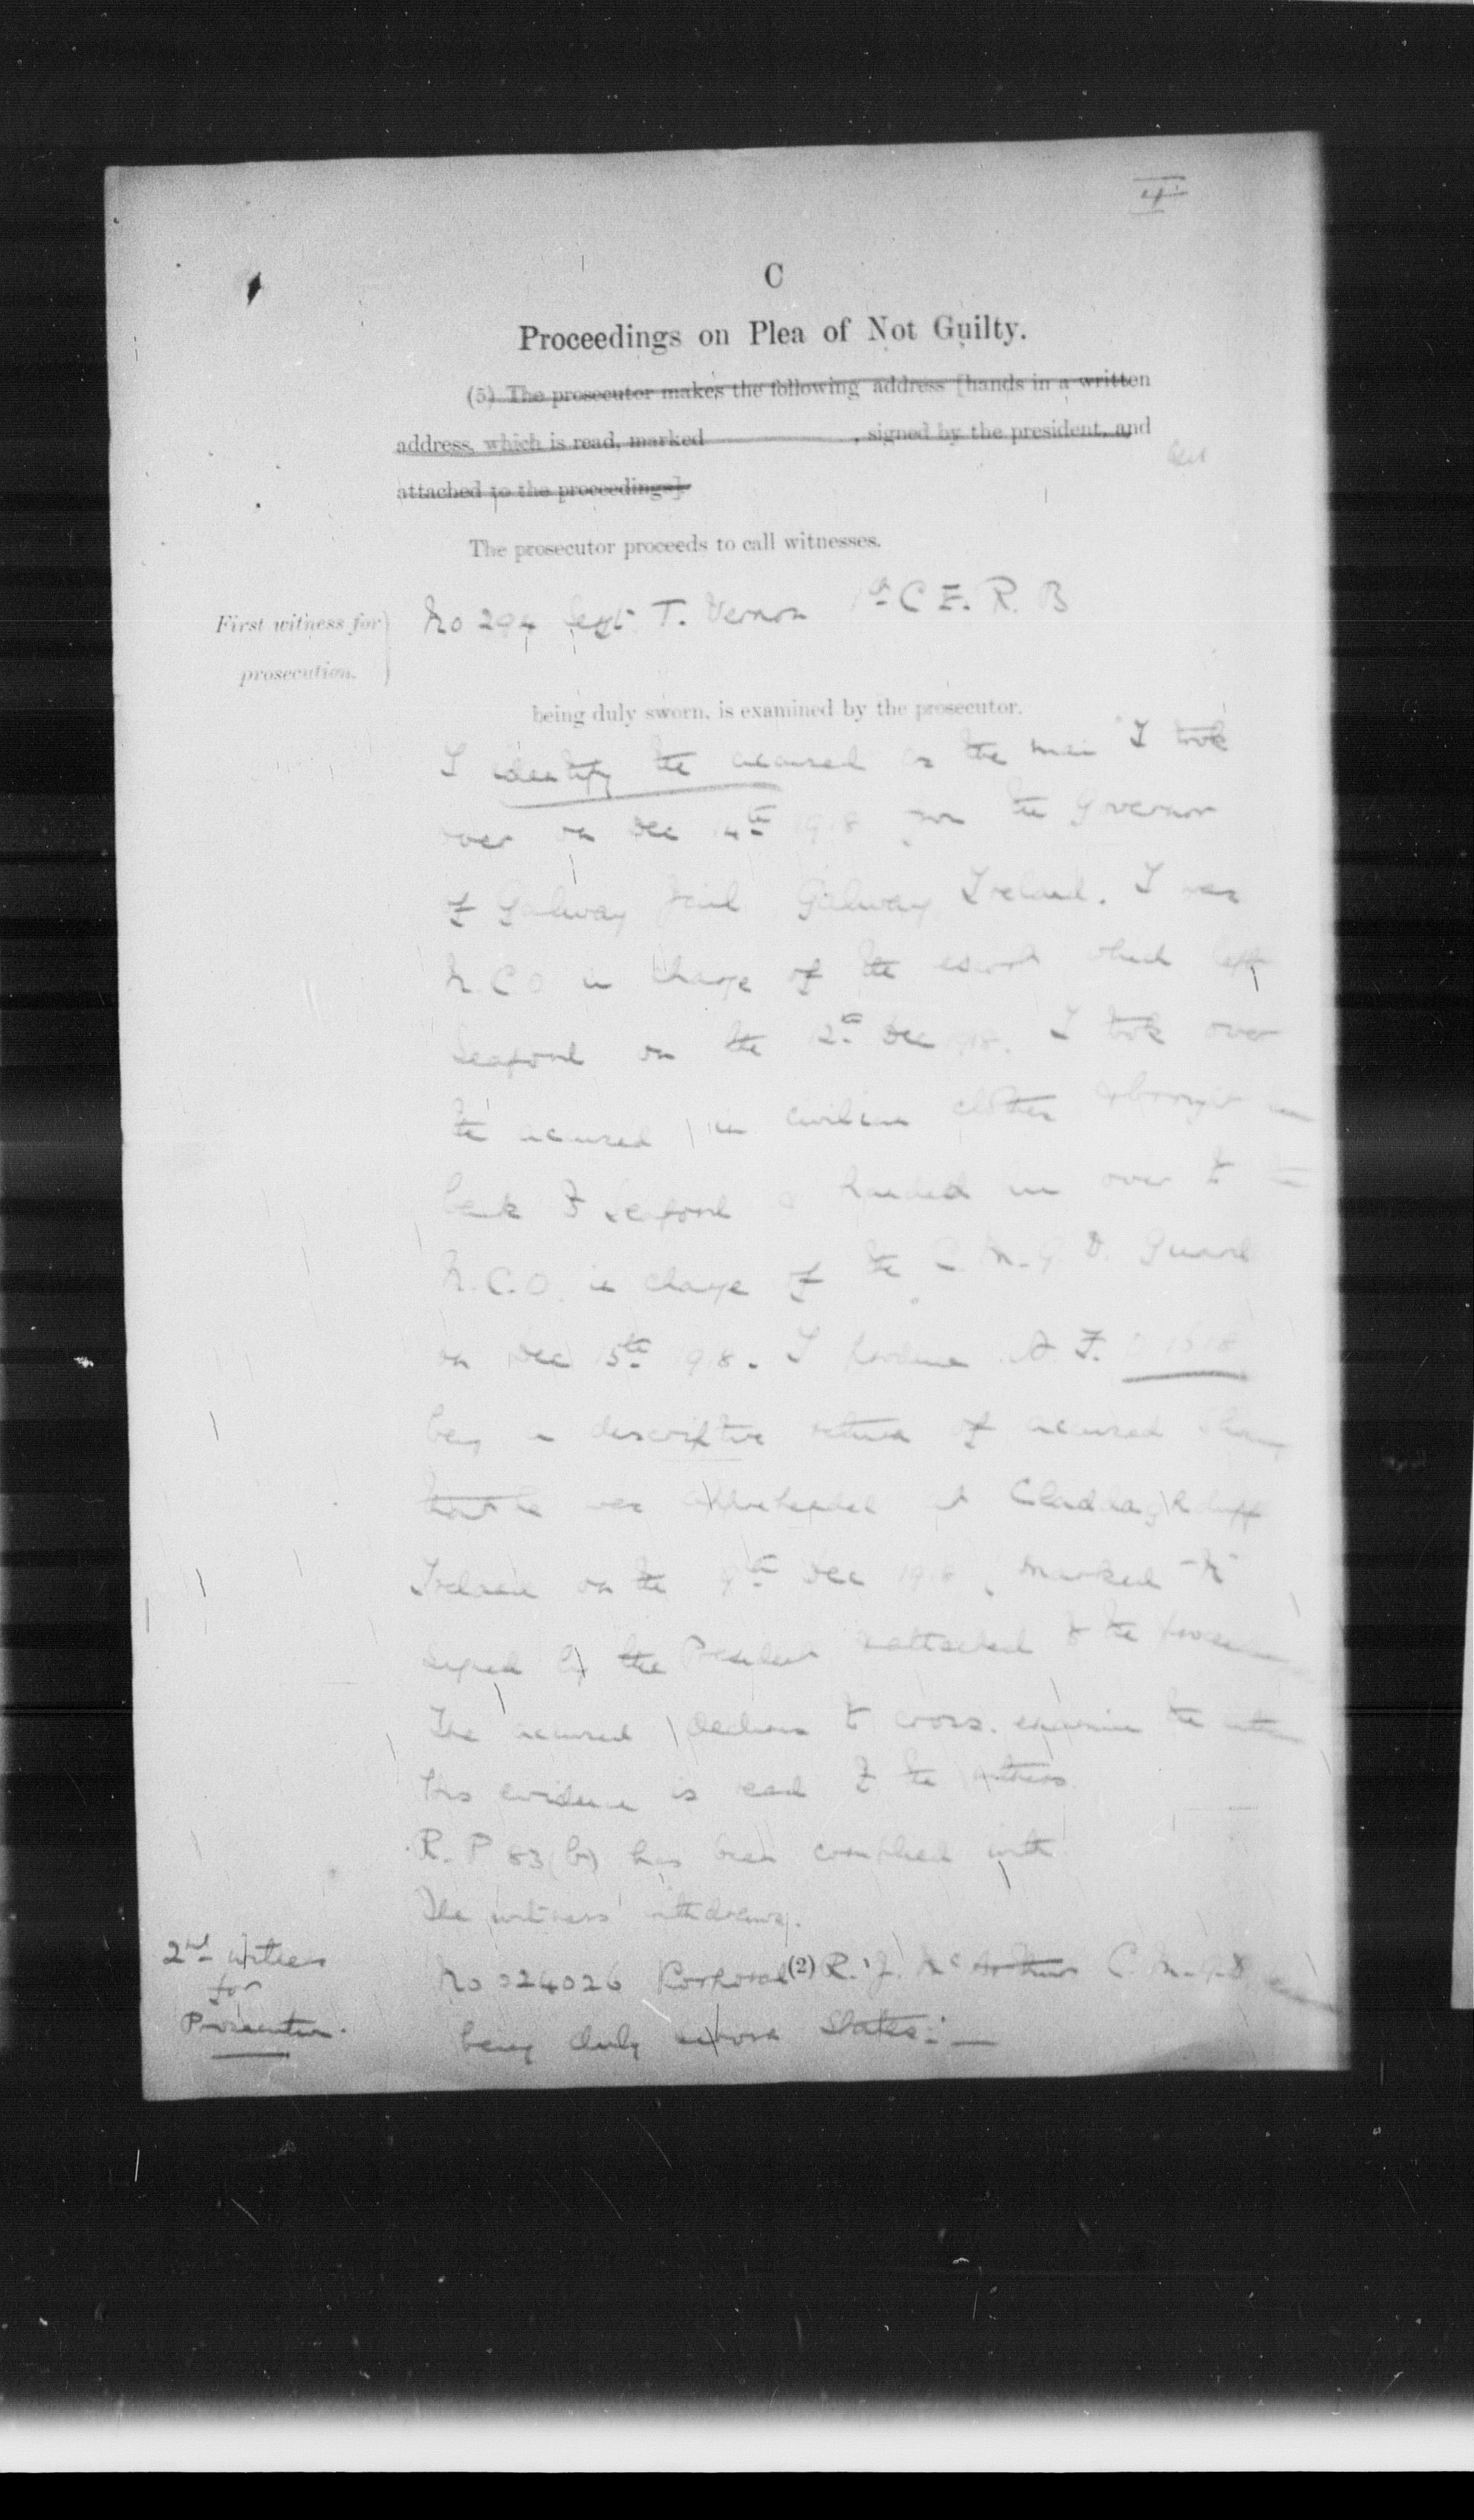 4
C
Proceedings on Plea of Not Guilty.
(5) The prosecutor makes the following address [hands in a written
address, which is read, marked , signed by the president, and
attached to the proceedings].
The prosecutor proceeds to call witnesses.
First witness for
prosecution.
No 294 Sergt T. Vernon 1st C E. R. B
being duly sworn, is examined by the prosecutor.
I identify the accused as the man I took
over on Dec 14th 1918 from the Governor
of Galway Jail Galway Ireland. I was
N.C.O in charge of the escort which left
Seaford on the 12th Dec 1918. I took over
the accused in civilian clothes & brought
back to Seaford & handed him over to
N.C.O. in charge of the C. M. G. D. Guard
on Dec 15th 1918. I produce A. F. O 1618
being a descriptive return of accused
that he was apprehended at Claddaghduff
Ireland on the 9th Dec 1918, marked
signed by the President & attached to the
The accused declines to cross. examine the
His evidence is read to the witness
R. P 83 (b) has been complied with
The witness withdraws.
2nd witness
for
Prosecution.
No 024026 Corporal (2) R. J. McArthur C. M. G. D.
being duly sworn states:—